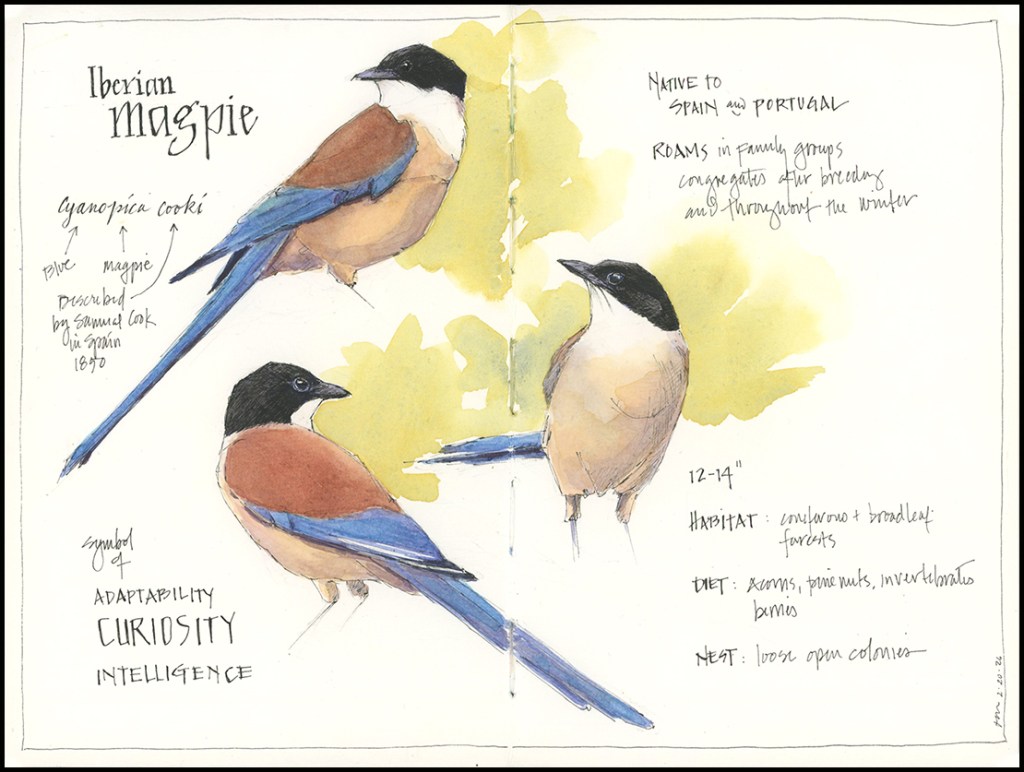 Iberian
magpie
Cyanopica cooki
Blue
magpie
Described
by Samuel Cook
in Spain
1850
symbol
of
ADAPTABILITY
CURIOSITY
INTELLIGENCE
NATIVE TO
SPAIN and PORTUGAL
ROAMS in family groups
congregates after breeding
and throughout the winter
12-14"
HABITAT: coniferous + broadleaf
forests
DIET: Acorns, pine nuts, invertebrates
berries
NEST: loose open colonies
2-20-26